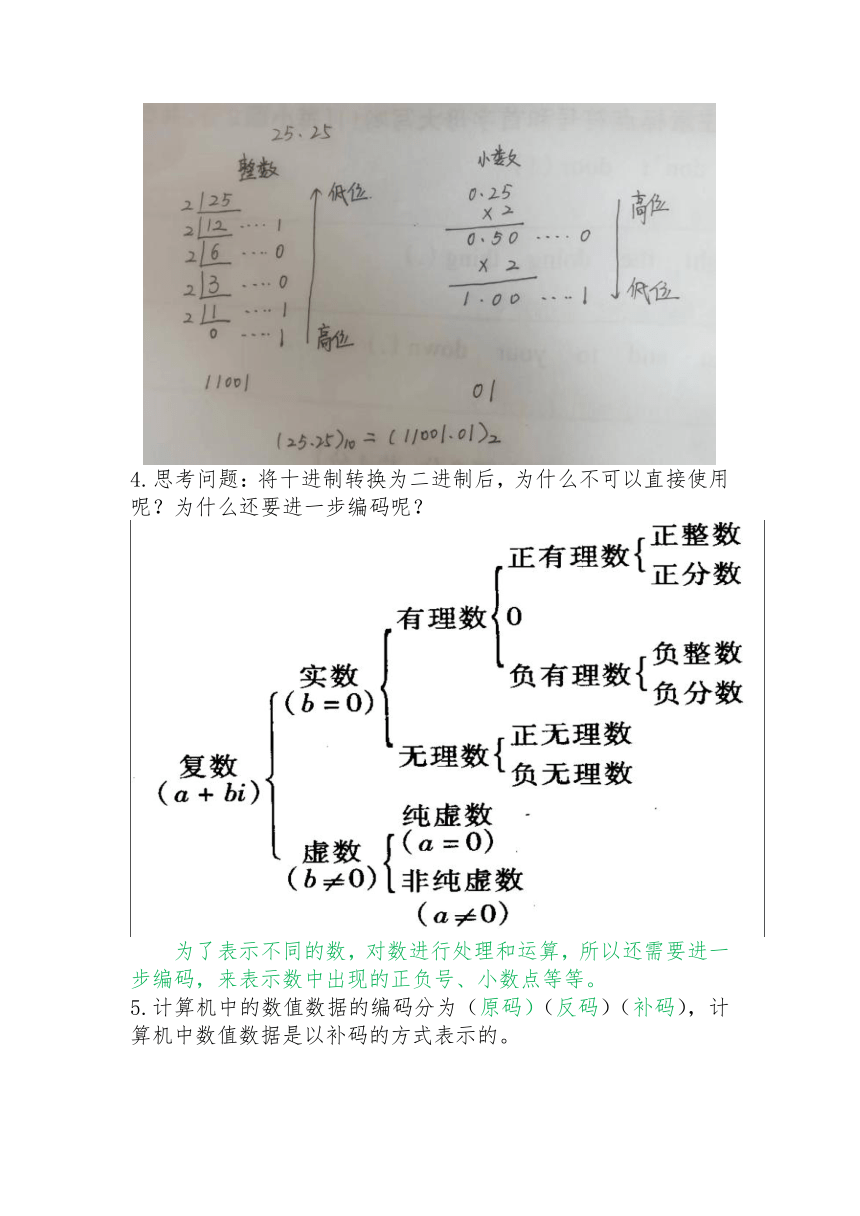 25.25
整数 小数
2 25 低位 0.25 高位
2 12 ····1 × 2
2 6 ····0 0.50 ····0
2 3 ····0 × 2
2 1 ····1 1.00 ····1 低位
0 ····1 高位
11001 01
(25.25)10 = (11001.01)2
4.思考问题:将十进制转换为二进制后,为什么不可以直接使用
呢?为什么还要进一步编码呢?
正整数
正有理数
正分数
有理数 0
实数 负整数
(b=0) 负有理数
负分数
正无理数
无理数
复数 负无理数
(a+bi)
纯虚数
虚数 (a=0)
(b≠0) 非纯虚数
(a≠0)
为了表示不同的数,对数进行处理和运算,所以还需要进一
步编码,来表示数中出现的正负号、小数点等等。
5.计算机中的数值数据的编码分为(原码)(反码)(补码),计
算机中数值数据是以补码的方式表示的。